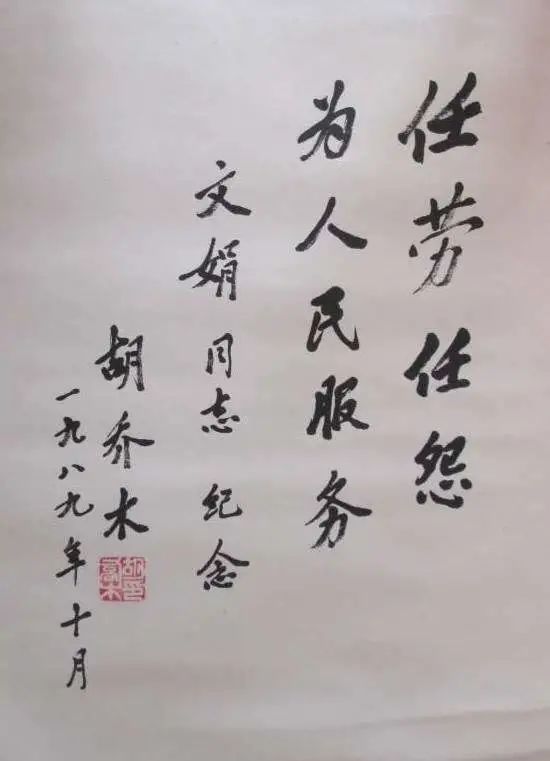 任劳任怨
为人民服务
文娟同志 纪念
胡乔木
一九八九年十月